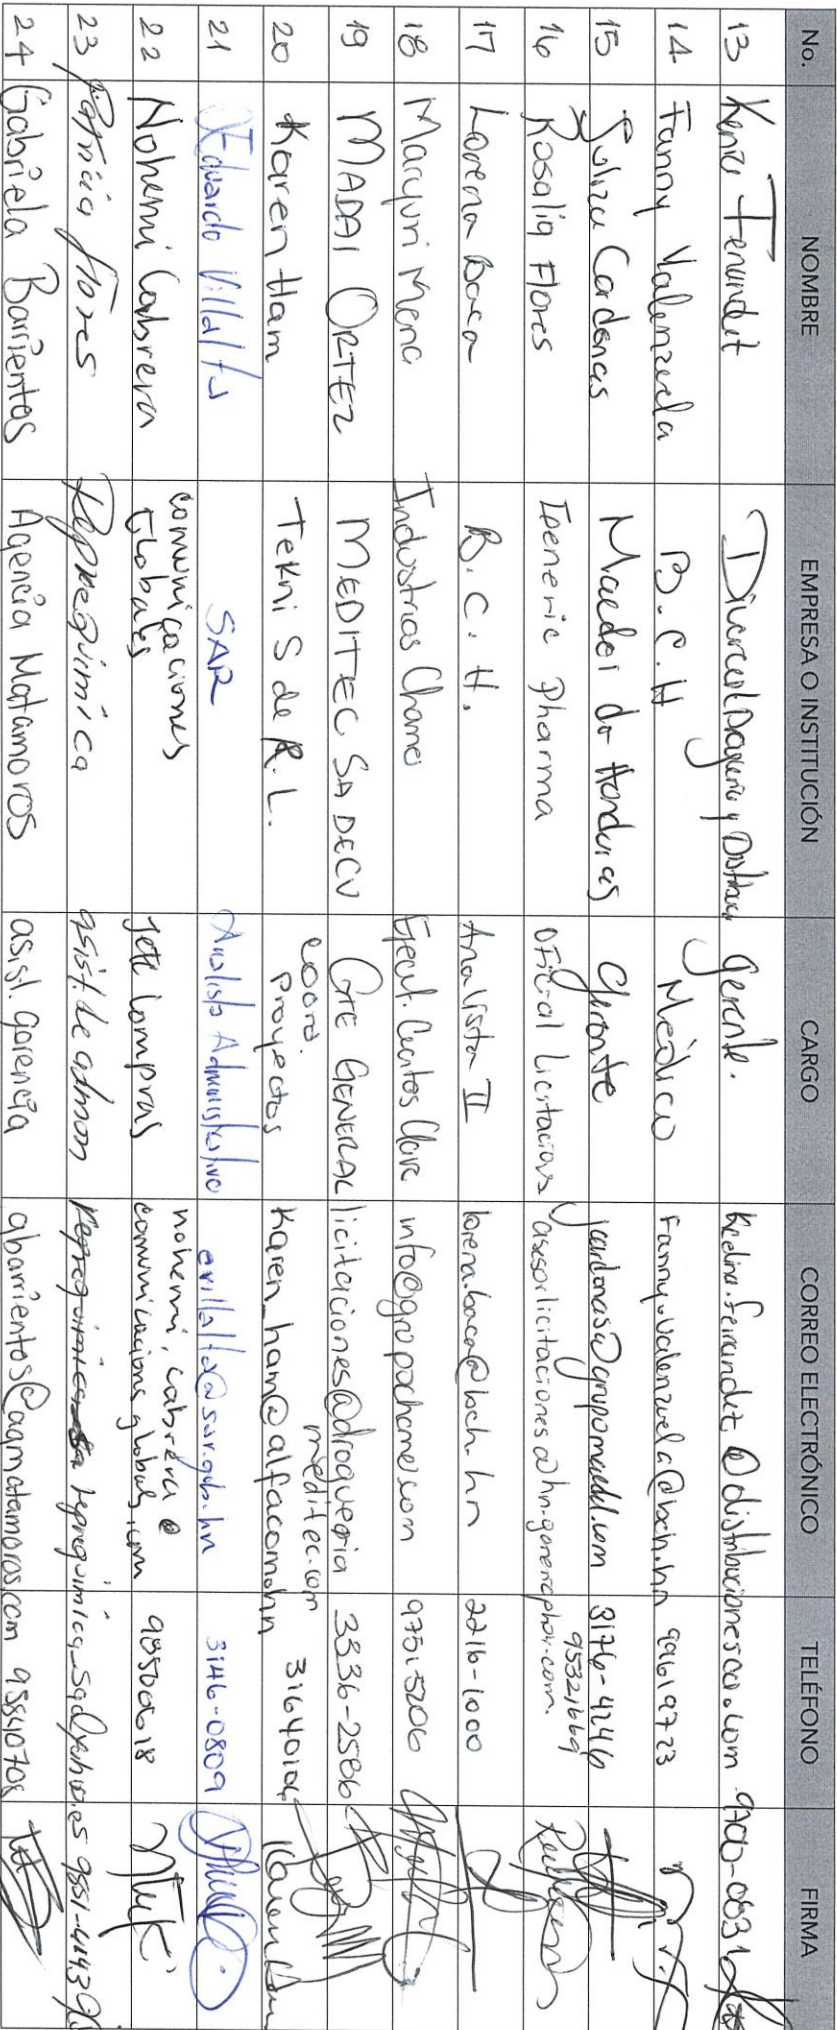 No. NOMBRE EMPRESA O INSTITUCIÓN CARGO CORREO ELECTRÓNICO TELÉFONO FIRMA
13 Gerente. 9700-0831
14 Fanny Valenzuela B.C.H Médico Fanny.valenzuela@bch.hn 99619723
15 Cardenas de Honduras Gerente 3176-4246
16 Rosalia Flores Generic Pharma Oficial Licitacions 95321669
17 Lorena Baca B.C.H. Analista II lorena.baca@bch.hn 2216-1000
18 Maryuri Mena Industrias Chamer Ejecut. Cuentas Clave info@grupochamer.com 9751-5206
19 MADAI ORTEZ MEDITEC SA DECV GTE GENERAL licitaciones@drogueria
meditec.com 3336-2586
20 Karen Ham Tekni S de R.L. coord.
proyectos Karen_ham@alfacom.hn 31640104
21 Eduardo Villalta SAR Analista Administrativo evillalta@sar.gob.hn 3146-0809
22 Nohemi Cabrera comunicaciones
Globales Jefe Compras nohemi.cabrera@
comunicacionesglobales.com 98500618
23 Patricia Flores Reprequimica asist. de admon 9851-4143
24 Gabriela Barrientos Agencia Matamoros asist. gerencia gbarrientos@agmatamoros.com 95840708